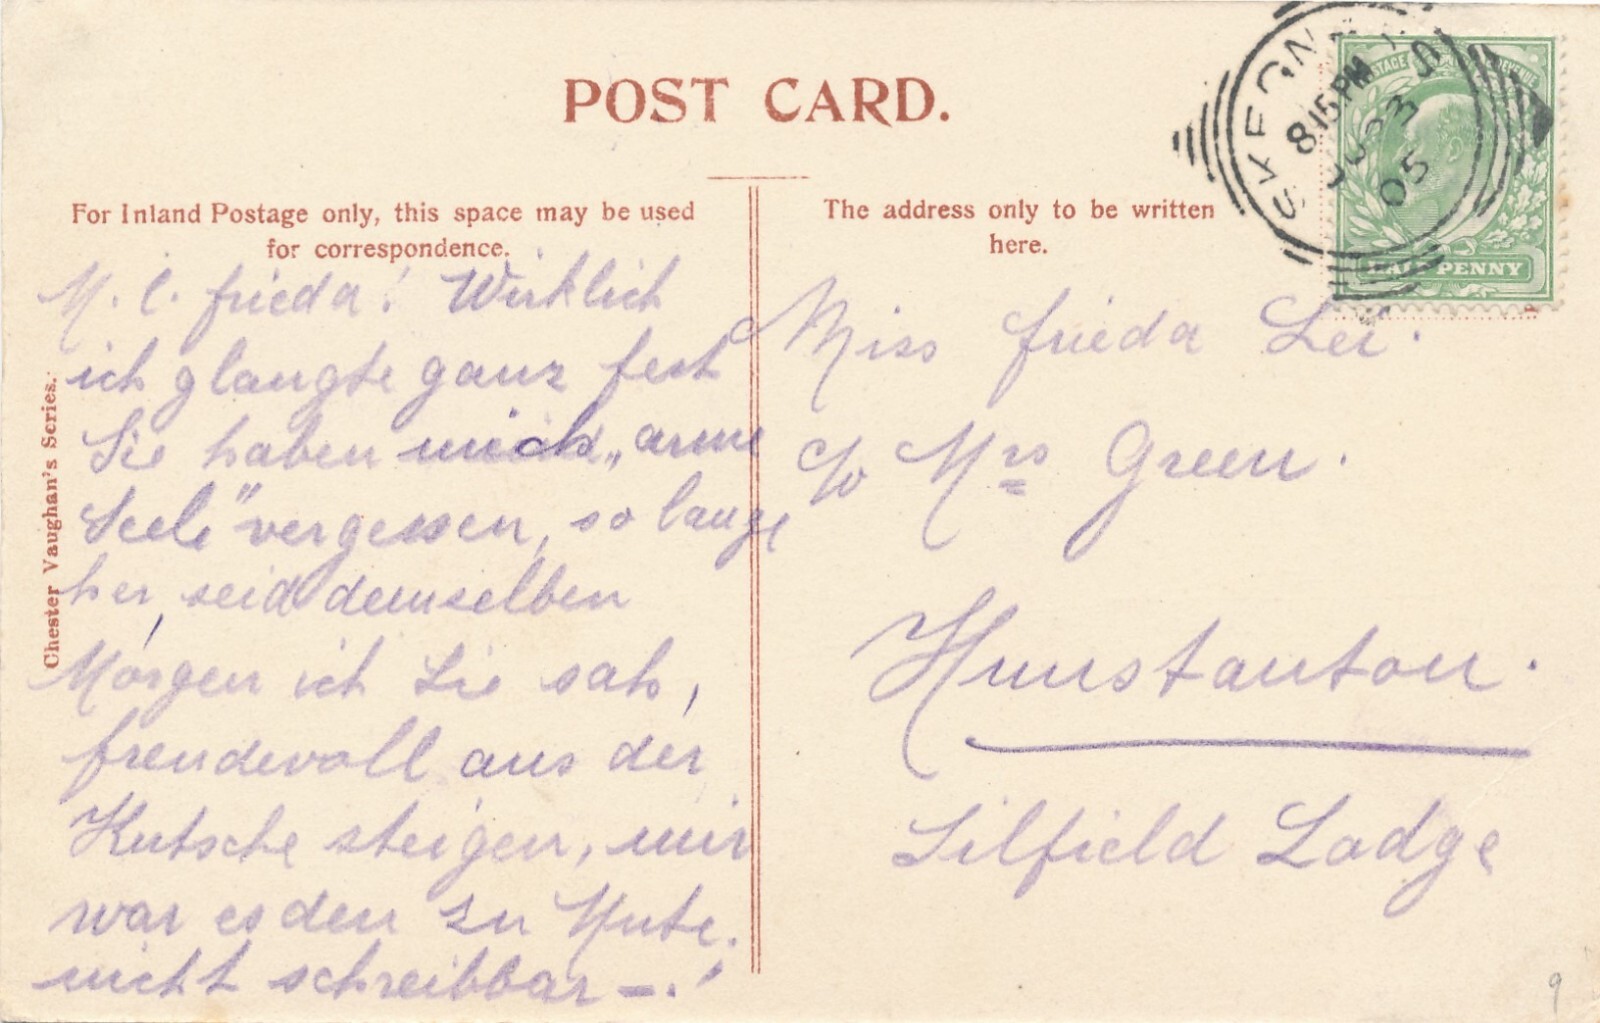 POST CARD.
For Inland Postage only, this space may be used
for correspondence.
The address only to be written
here.
Chester Vaughan's Series.
M. l. Frieda! Wirklich
ich glangte ganz fest
Sie haben mich „arme
Seele" vergessen, so lange
her, seid demselben
Morgen ich Sie sah,
freudevoll aus der
Kutsche steigen, mir
war es den zu Mute.
nicht schreibbar —.'
Miss Frieda Lei.
c/o Mrs Green.
Hunstanton.
Silfield Lodge
8.15 PM
05
HALF PENNY
9